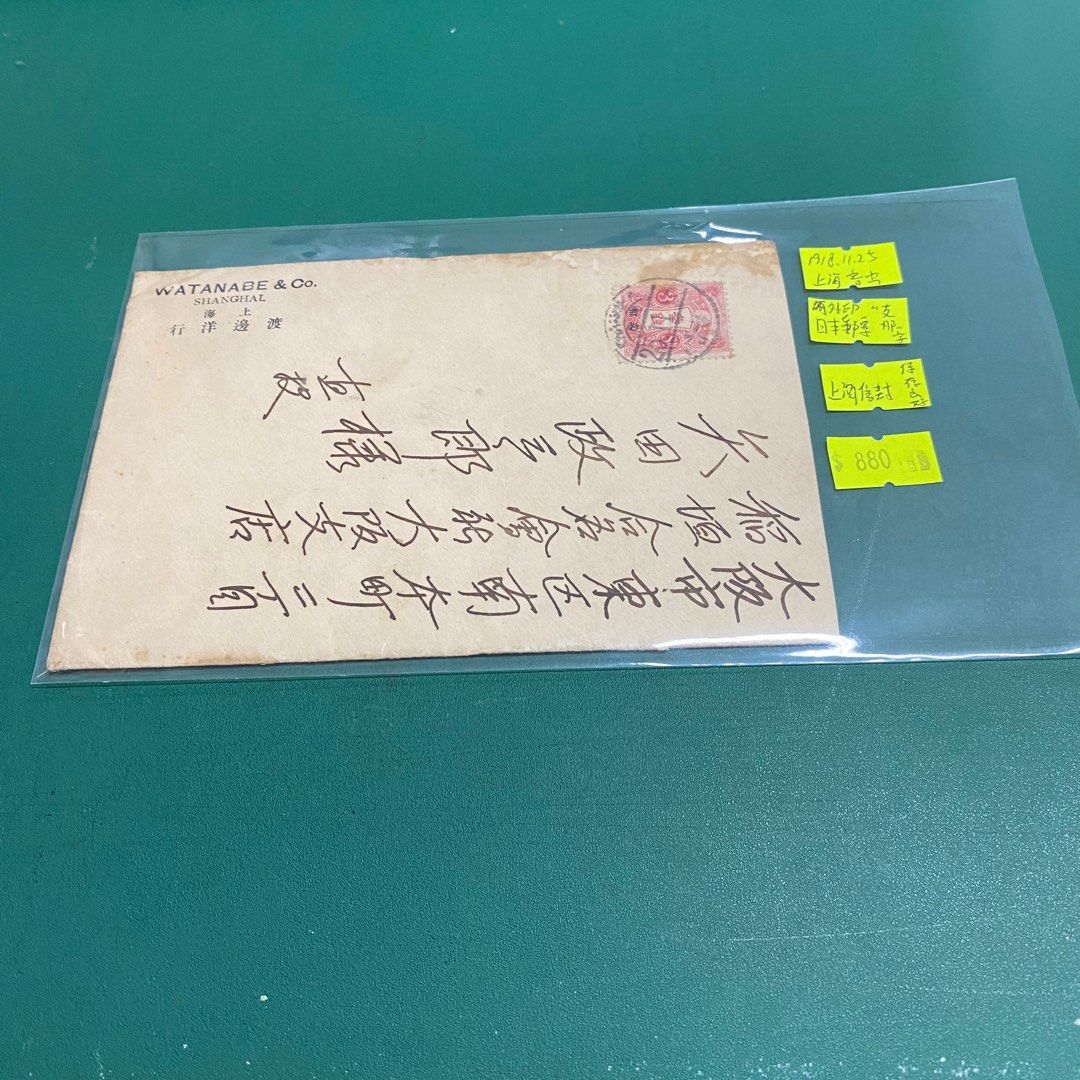 WATANABE & Co.
SHANGHAI.
上海
渡邊洋行
3
大阪市東区南本町二丁目
稲垣合名會社大阪支店
矢田政三郎様
直披
1918.11.25
上海寄出
日本郵票
上海信封
保存良好
088